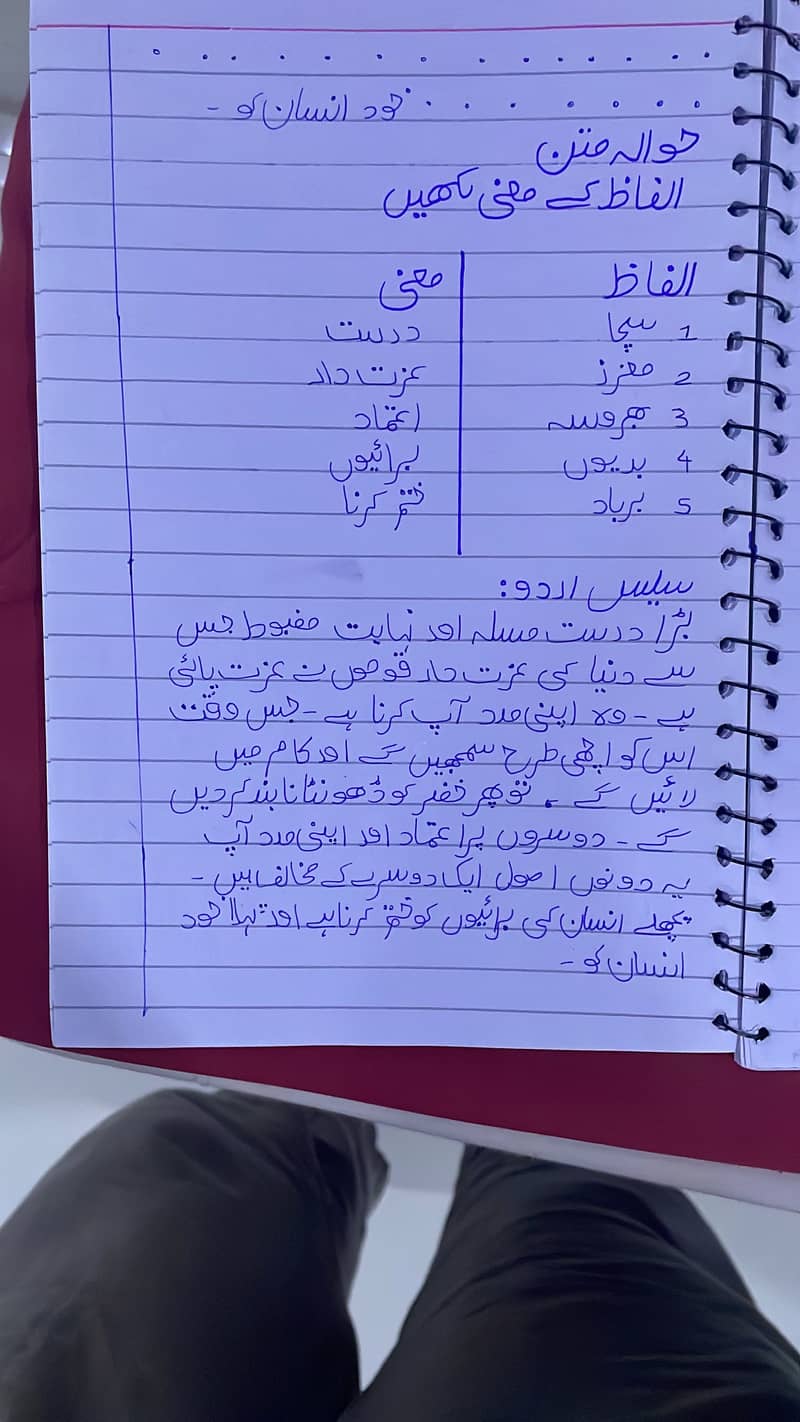 . . . . . . . . . . . . .
. . . . . . . خود انسان کو -
حوالہ متن
الفاظ کے معنی لکھیں
الفاظ معنی
1 سچا درست
2 معزز عزت دار
3 بھروسہ اعتماد
4 بدیوں برائیوں
5 برباد ختم کرنا
سلیس اردو:
بڑا درست مسلہ اور نہایت مضبوط جس
سے دنیا کی عزت دار قوموں نے عزت پائی
ہے - وہ اپنی مدد آپ کرنا ہے - جس وقت
اس کو اچھی طرح سمجھیں گے اور کام میں
لائیں گے - تو پھر خضر کو ڈھونٹانا بند کر دیں
گے - دوسروں پر اعتماد اور اپنی مدد آپ
یہ دونوں اصول ایک دوسرے کے مخالف ہیں -
پچھلے انسان کی برائیوں کو ختم کرنا ہے اور پہلا خود
انسان کو -